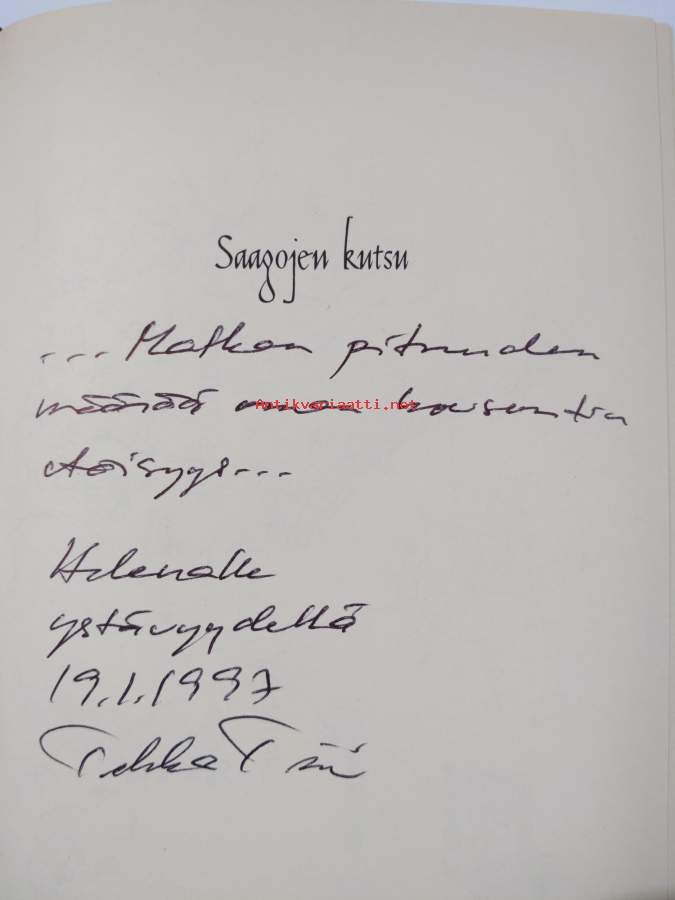 Saagojen kutsu
... Matkan pituuden
määrää oman
Antikvariaatti.net
etäisyys...
Helenalle
ystävyydellä
19.1.1997
Pekka